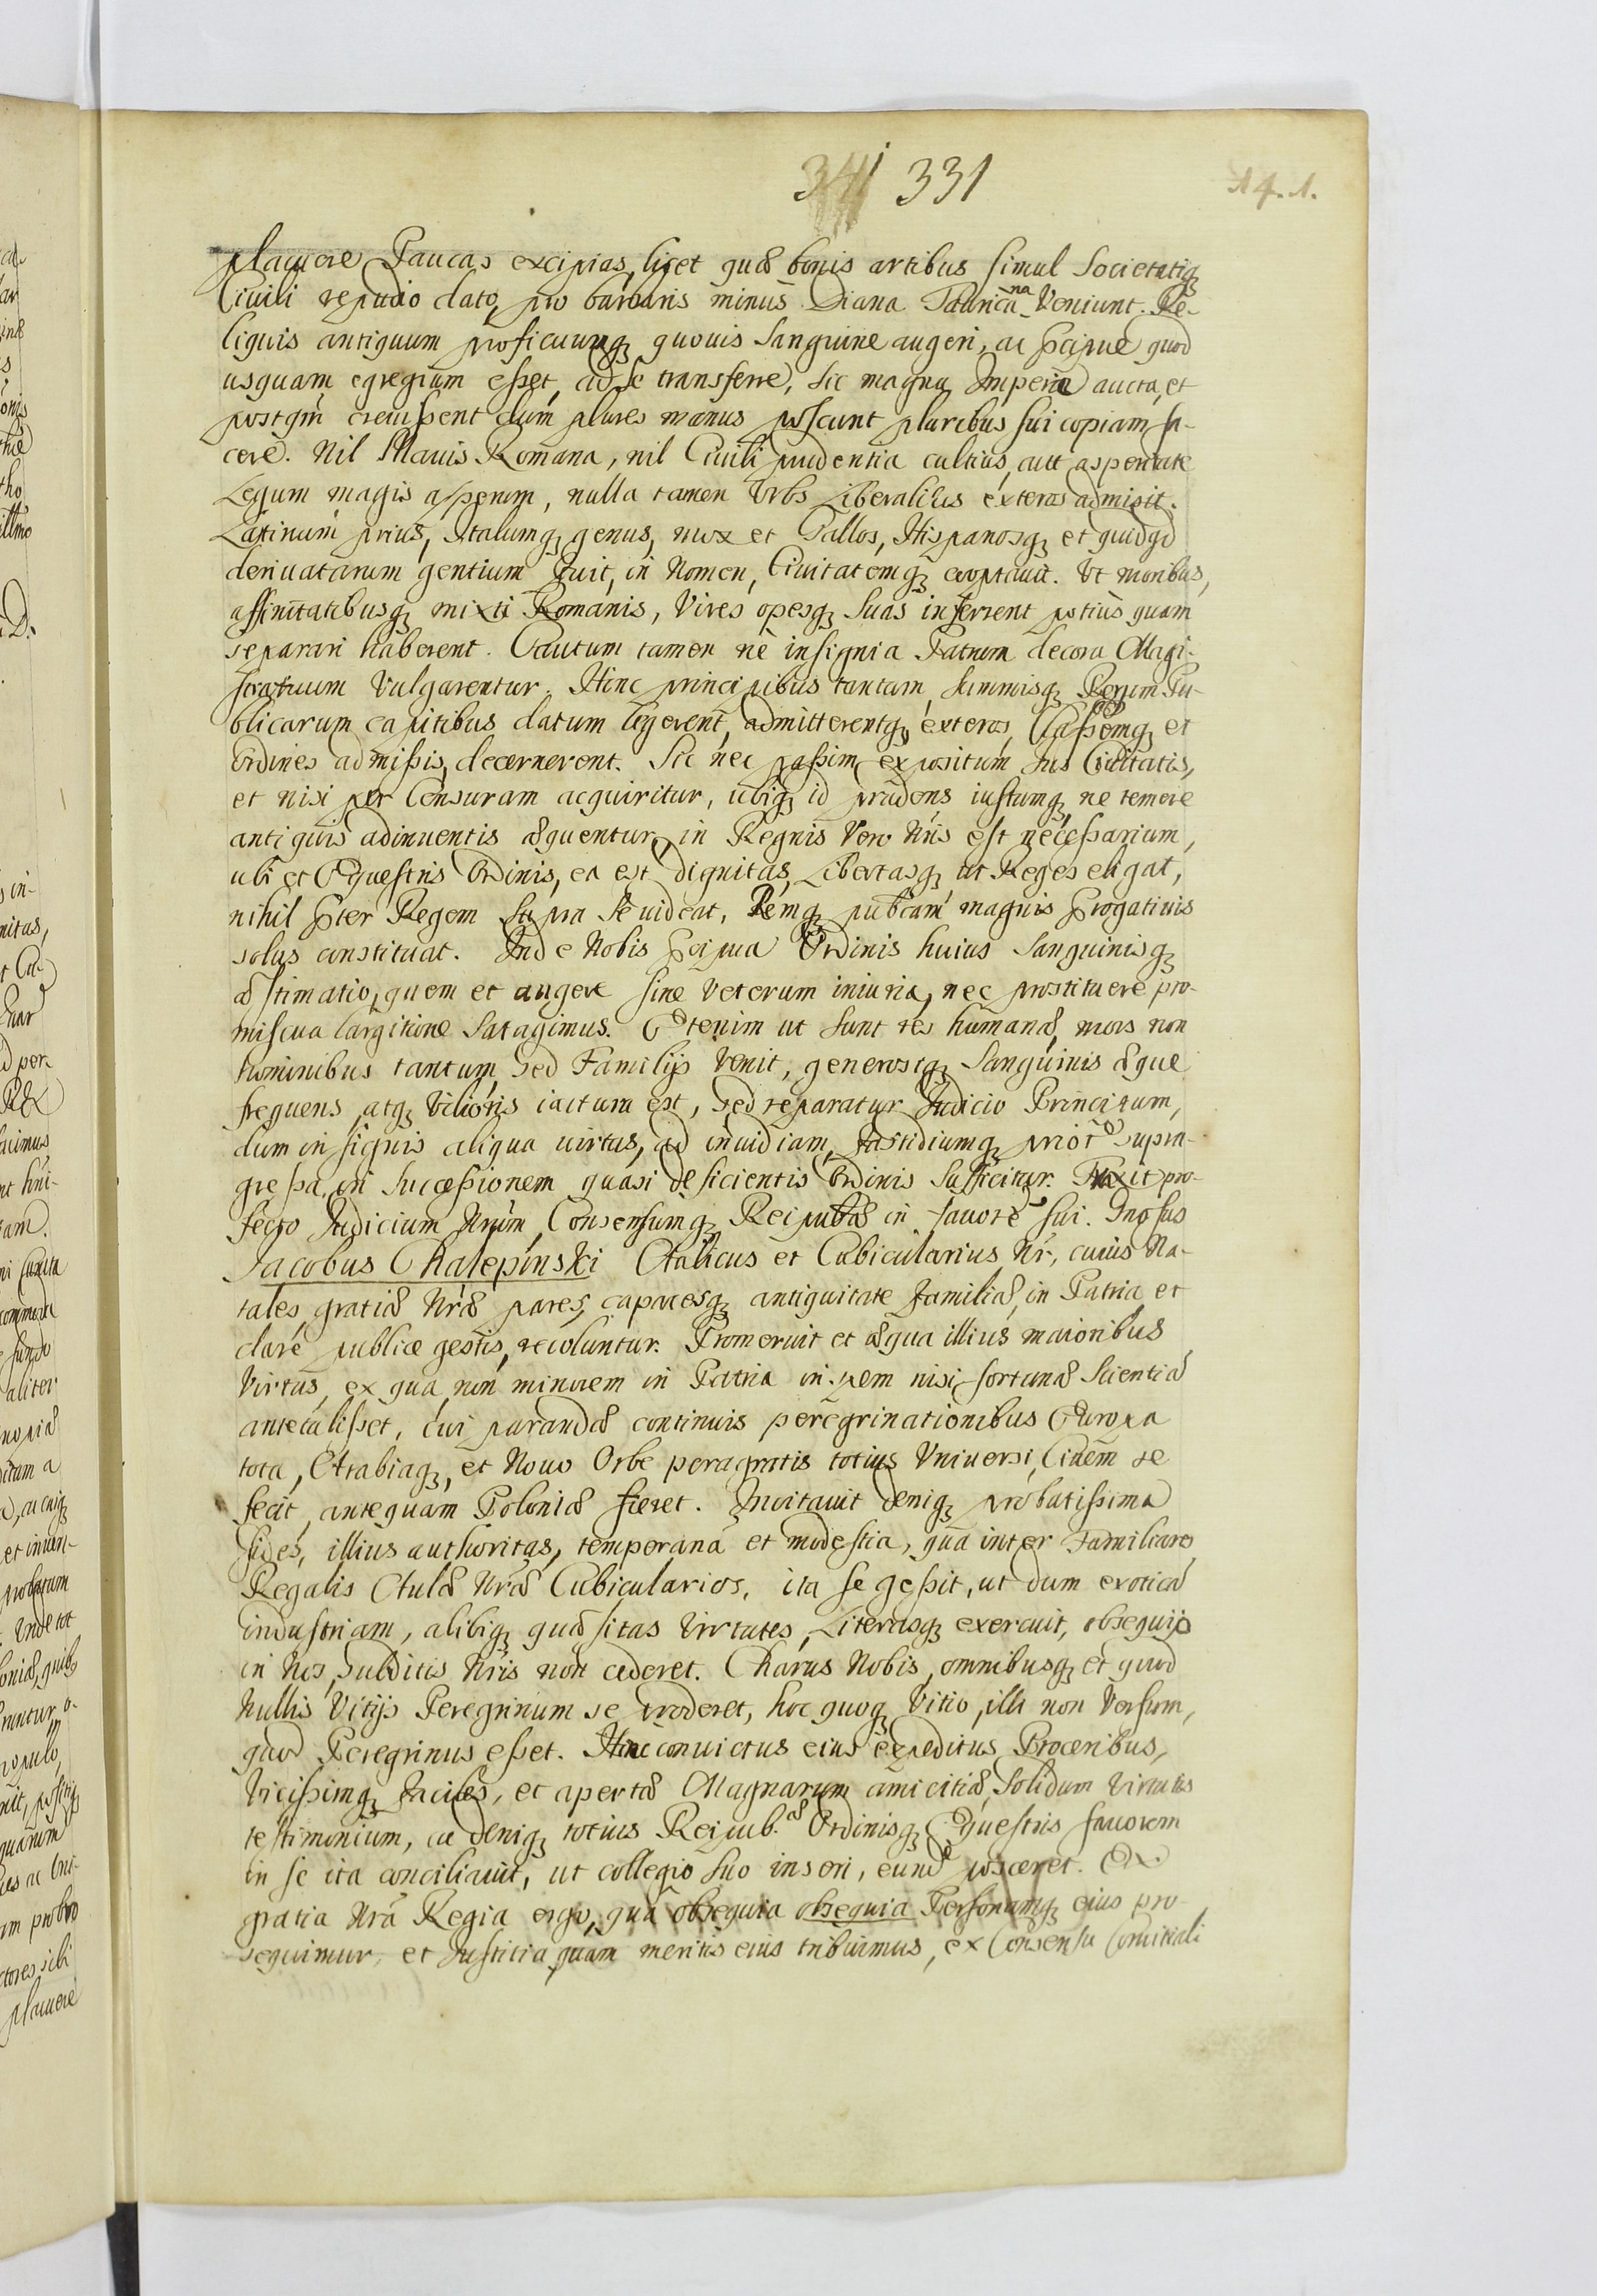 341 331
14.1.
placuere Paucas excipias, licet quæ bonis artibus simul Societatiq;
Ciuili repudio dato, pro barbaris minus Diana Taurica na Veniunt. Re-
liquis antiquum proficuumq; quouis Sanguine augeri, ac pcipue quod
usquam egregium esset, ad se transferre, sic magna Imperia aucta, et
postqm creuissent dum plures manus poscunt pluribus sui copiam fa-
cere. Nil Mauis Romana, nil Ciuili prudentia cultius, aut asperitate
Legum magis asperum, nulla tamen Vrbs Liberalius exteros admisit.
Latinum prius, Italumq; genus, mox et Gallos, Hispanosq; et quidqd
deriuatarum gentium fuit, in Nomen, Ciuitatemq; cooptauit. Vt moribus,
affinitatibusq; mixti Romanis, Vires opesq; suas inferrent potius quam
separari haberent. Cautum tamen ne insignia Patrum decora Magi-
stratuum Vulgarentur. Hinc principibus tantam, summisq; Rerum Pu-
blicarum capitibus datum legerent, admitterentq; exteros, Classemq; et
Ordines admissis decernerent. Sic nec passim expositum Jus Ciuitatis,
et nisi per Censuram acquiritur, ubiq; id prudens iustumq; ne temere
antiquis adinuentis æquentur, in Regnis Vero Nris est necessarium,
ubi et Equestris Ordinis, ea est dignitas, Libertasq; ut Reges eligat,
nihil pter Regem supra se uideat, Remq; pubcam magnis progatiuis
solus constituat. Inde Nobis pcipua Ordinis huius Sanguinisq;
æstimatio, quem et augere sine Veterum iniuria, nec prostituere pro-
miscua largitione Satagimus. Etenim ut sunt res humanæ, mors non
hominibus tantum, sed Familijs Venit, generosiq; Sanguinis æque
frequens, atq; Vilioris iactura est, sed reparatur Judicio Principum,
dum insignis aliqua uirtus, ad inuidiam, fastidiumq; prior̃ supra-
gressa, in Successionem quasi deficientis Ordinis Sufficitur. Traxit pro-
fecto Judicium Nrum, Consensumq; Reipubæ in fauore sui. Gnosus
Jacobus Chalepinski Italicus et Cubicularius Nr, cuius Na-
tales, gratiæ Nræ pares, capacesq; antiquitate familiæ, in Patria et
clare publice gestis, recoluntur. Promeruit et æqua illius maioribus
Virtus, ex qua non minorem in Patria in spem nisi fortunæ Scientiæ
antetulisset, cui parandæ continuis peregrinationibus Europa
tota, Arabiaq; et Nouo Orbe peragratis totius Vniuersi, Ciuem se
fecit, antequam Poloniæ fieret. Inuitauit deniq; probatissima
fides, illius authoritas, temperana et modestia, qua inter Familiares
Regalis Aulæ Nræ Cubicularios, ita se gessit, ut dum exotica
industriam, alibiq; quæsitas Virtutes, Literasq; exercuit, obsequijs
in Nos, Subditis Nris non cederet. Charus Nobis, omnibusq; et quod
Nullis Vitijs Peregrinum se proderet, hoc quoq; Vitio, illi non Versum,
quod Peregrinus esset. Hinc conuictus eius expeditus Proceribus,
Vicissimq; faciles, et apertæ Magnarum amicitiæ, Solidum Virtutis
testimonium, ac deniq; totius Reipub.æ Ordinisq; Equestris fauorem
in se ita conciliauit, ut collegio suo inseri, eund posceret. Ex
gratia Nra Regia ergo, qua obsequia obsequia Personamq; eius pro-
sequimur, et Justitia quam meritis eius tribuimus, ex Consensu Comitiali